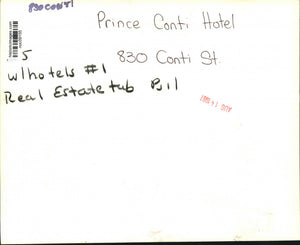 830 CONTI
Prince Conti Hotel
5
830 Conti St.
w/hotels #1
Real Estate tub